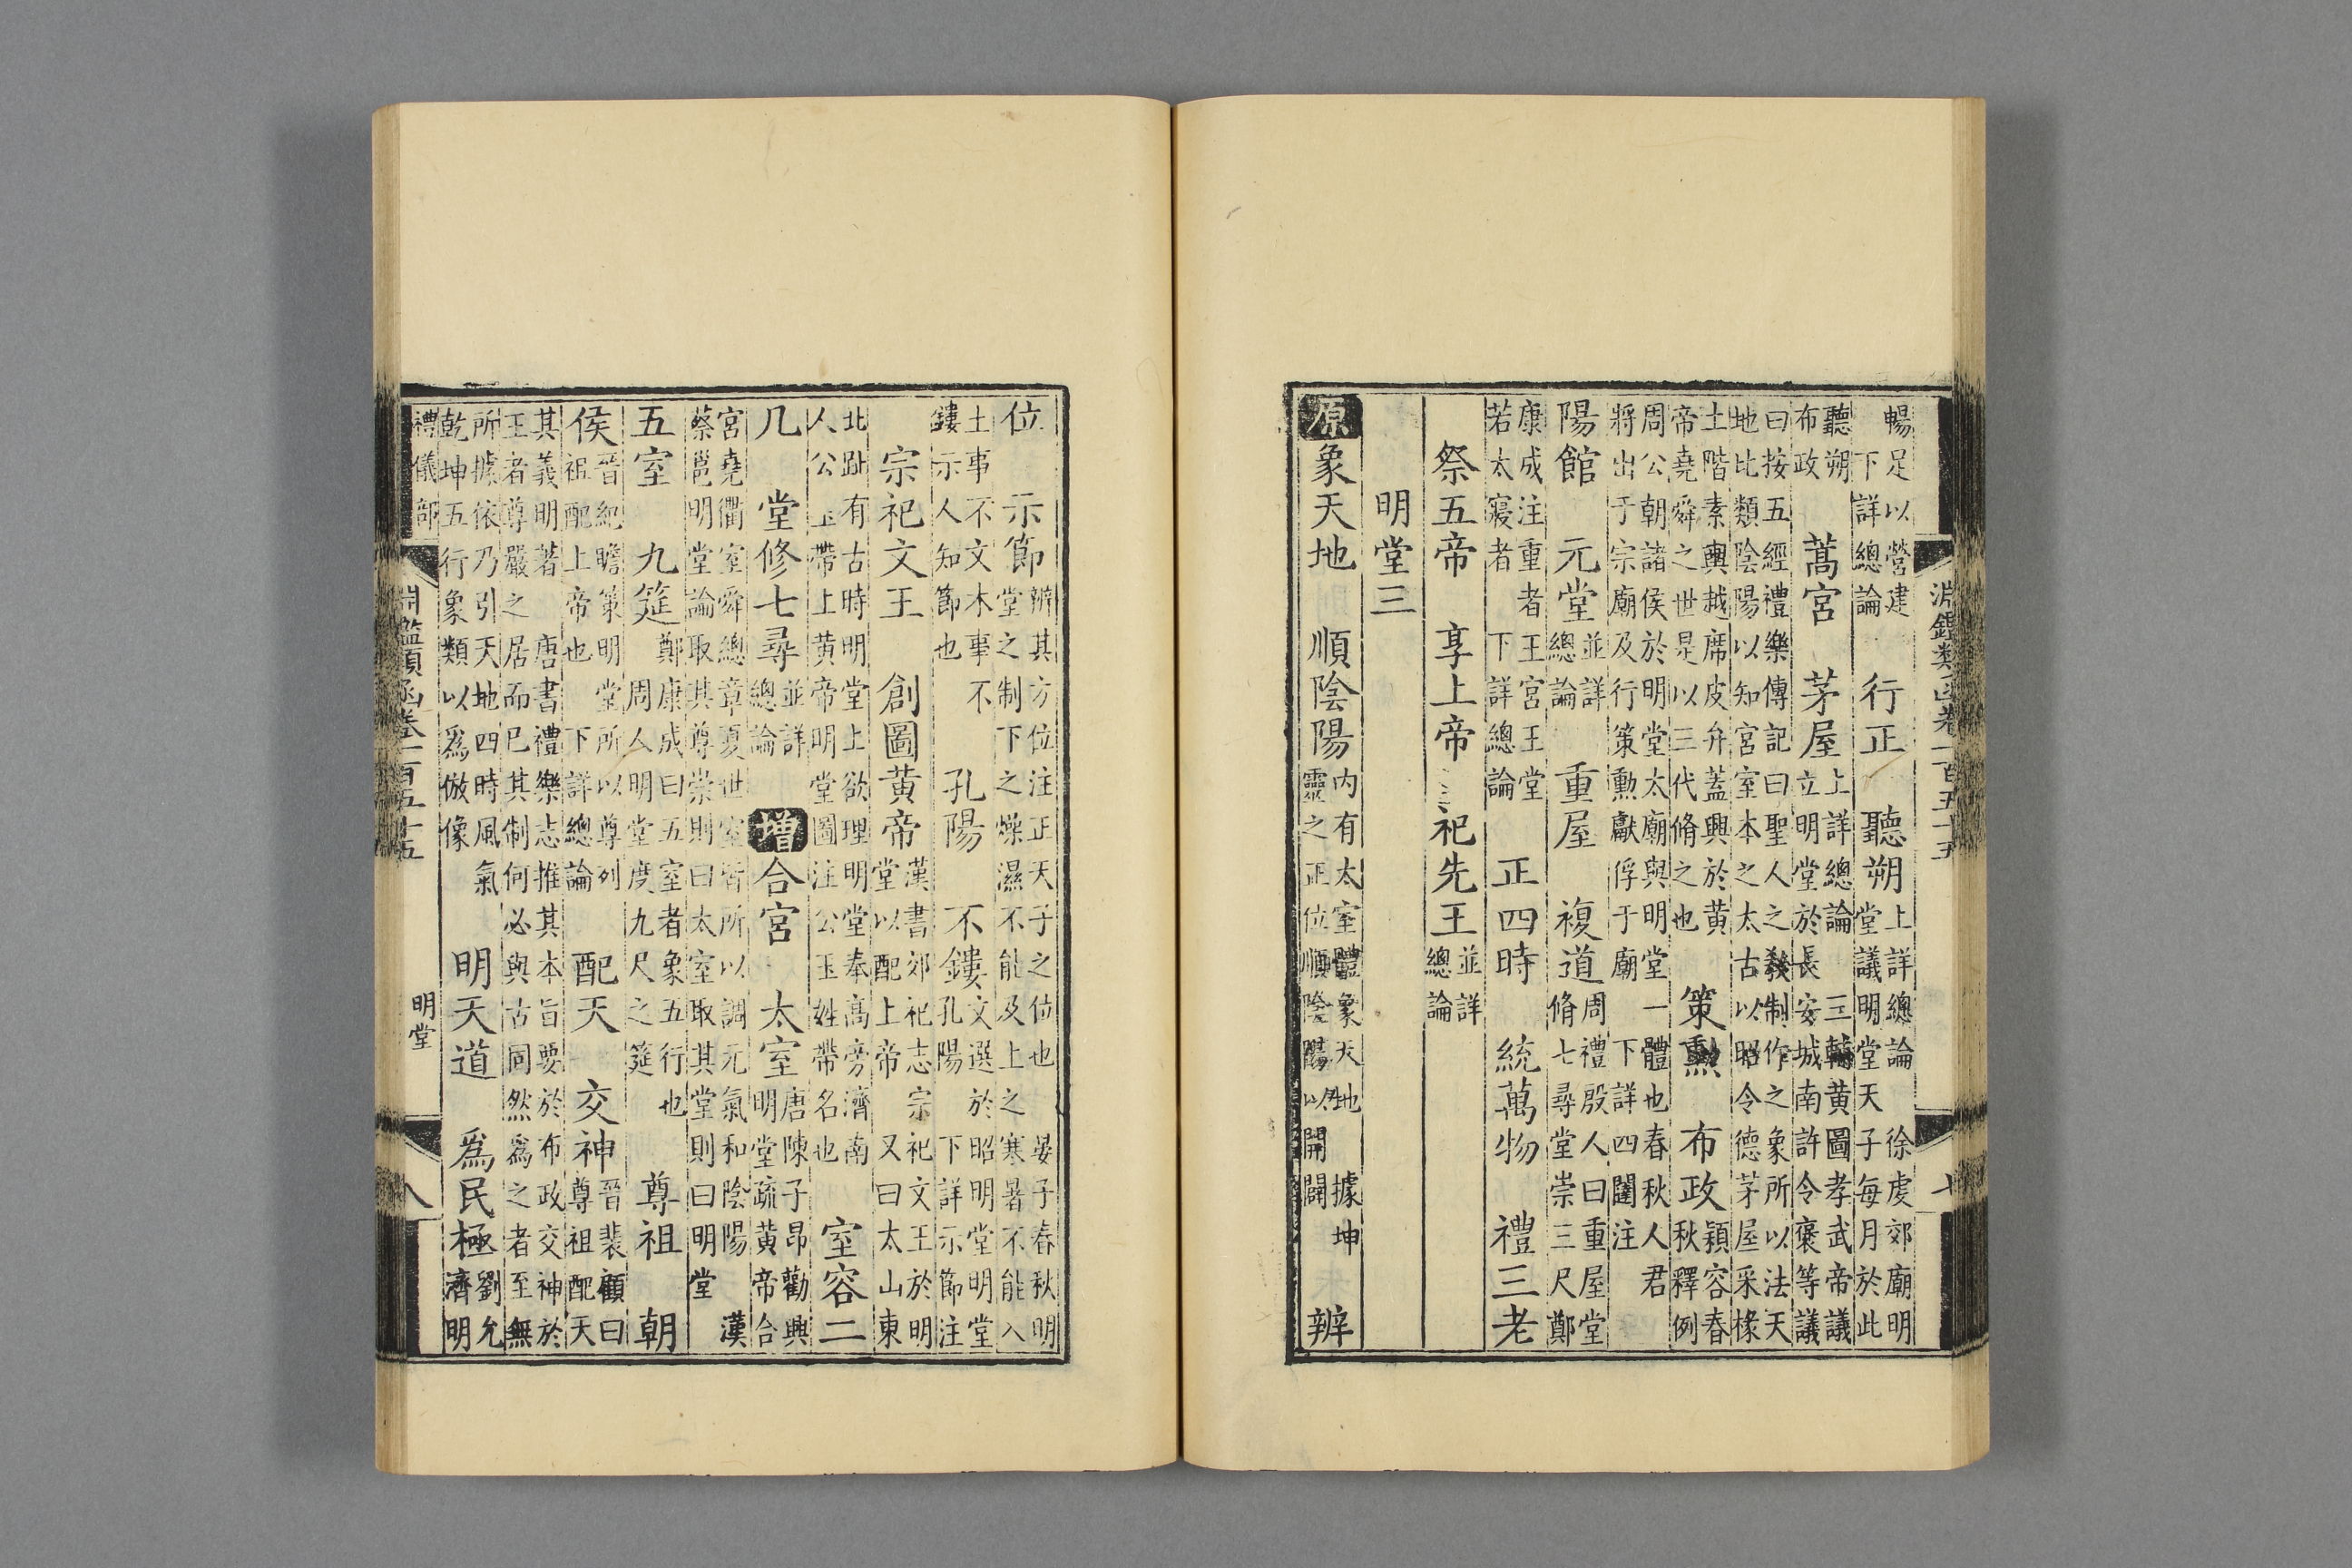 淵鑑類函卷一百五十五 七
暢足以營建
下詳總論
行正 聽朔
上詳總論 徐虔郊廟明
堂議明堂天子每月於此
聽朔
布政
蒿宮 茅屋
上詳總論 三輔黃圖孝武帝議
立明堂於長安城南許令褒等議
曰按五經禮樂傳記曰聖人之教制作之象所以法天
地比類陰陽以知宮室本之太古以昭令德茅屋采椽
土階素輿越席皮弁蓋興於黃
帝堯舜之世是以三代脩之也
策勲 布政
潁容春
秋釋例
周公朝諸侯於明堂太廟與明堂一體也春秋人君
將出于宗廟及行策勳獻俘于廟 下詳四闥注
陽館 元堂
並詳
總論
重屋 複道
周禮殷人曰重屋堂
脩七尋堂崇三尺鄭
康成注重者王宮王堂
若太寢者 下詳總論
正四時 統萬物 禮三老
祭五帝 享上帝 祀先王
並詳
總論
明堂三
原象天地 順陰陽
内有太室體象天地 據坤
靈之正位順陰陽以開闢
辨
位 示節
辨其方位注正天子之位也 晏子春秋明
堂之制下之燥濕不能及上之寒暑不能入
土事不文木事不
鏤示人知節也
孔陽 不鏤
文選於昭明堂明堂
孔陽 下詳示節注
宗祀文王 創圖黃帝
漢書郊祀志宗祀文王於明
堂以配上帝 又曰太山東
北趾有古時明堂上欲理明堂奉高旁濟南
人公玉帶上黃帝明堂圖注公玉姓帶名也
室容二
几 堂修七尋
並詳
總論
增合宮 太室
唐陳子昂勸興
明堂疏黃帝合
宮堯衢室舜總章夏世室皆所以調元氣和陰陽 漢
蔡邕明堂論取其尊崇則曰太室取其堂則曰明堂
五室 九筵
鄭康成曰五室者象五行也
周人明堂度九尺之筵
尊祖 朝
侯
晉紀瞻策明堂所以尊列
祖配上帝也 下詳總論
配天 交神
晉裴頠曰
尊祖配天
其義明著 唐書禮樂志推其本旨要於布政交神於
王者尊嚴之居而已其制何必與古同然爲之者至無
所據依乃引天地四時風氣
乾坤五行象類以爲倣像
明天道 爲民極
劉允
濟明
禮儀部 淵鑑類函卷一百五十五 明堂 八